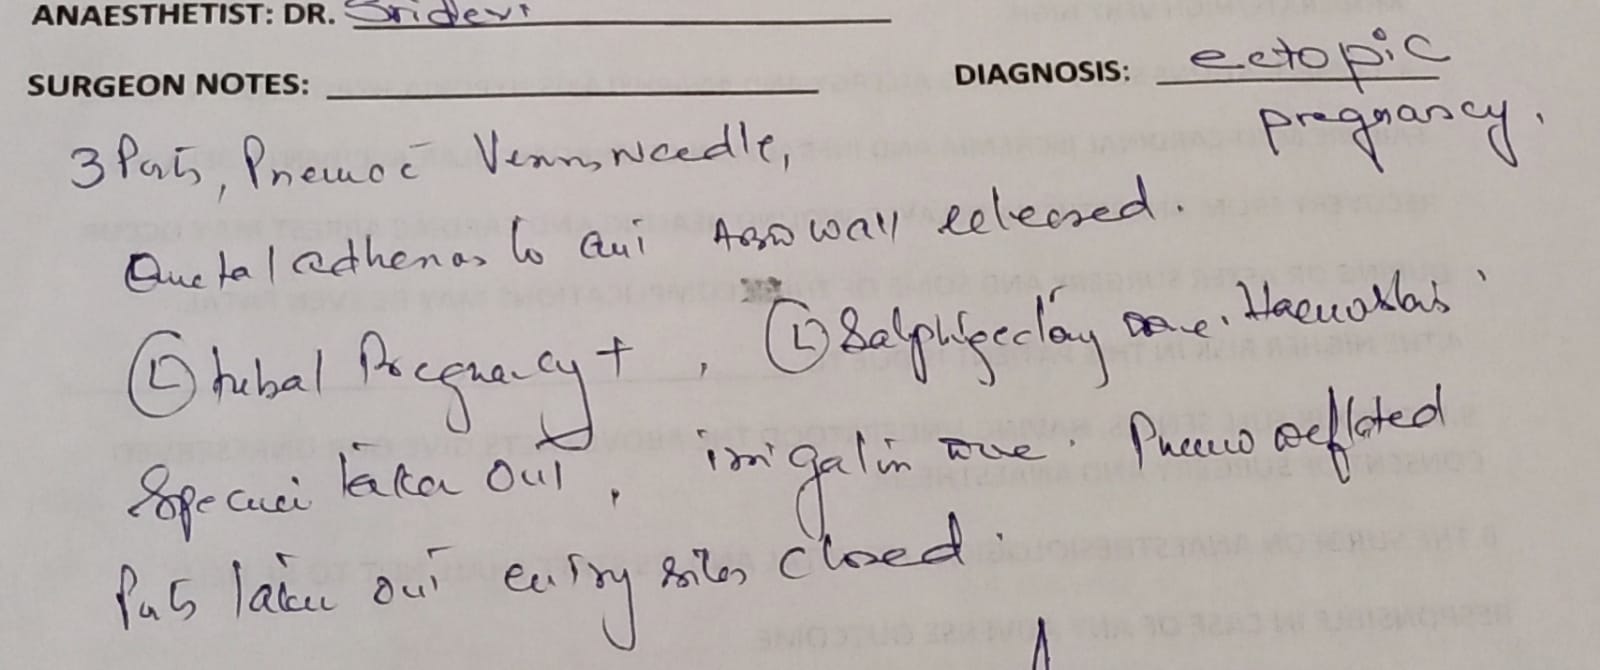 ANAESTHETIST: DR. Sridevi
SURGEON NOTES: DIAGNOSIS: ectopic
pregnancy.
3 Ports, Pnemo c̄ Verres Needle,
Omental adhenos to Ant Abdo wall released.
(L) tubal Pregnancy +, (L) Salphigectoy done. Haemostas
Specimen taken out, irrigation done. Pnemo deflated
Ports taken out entry sites closed.